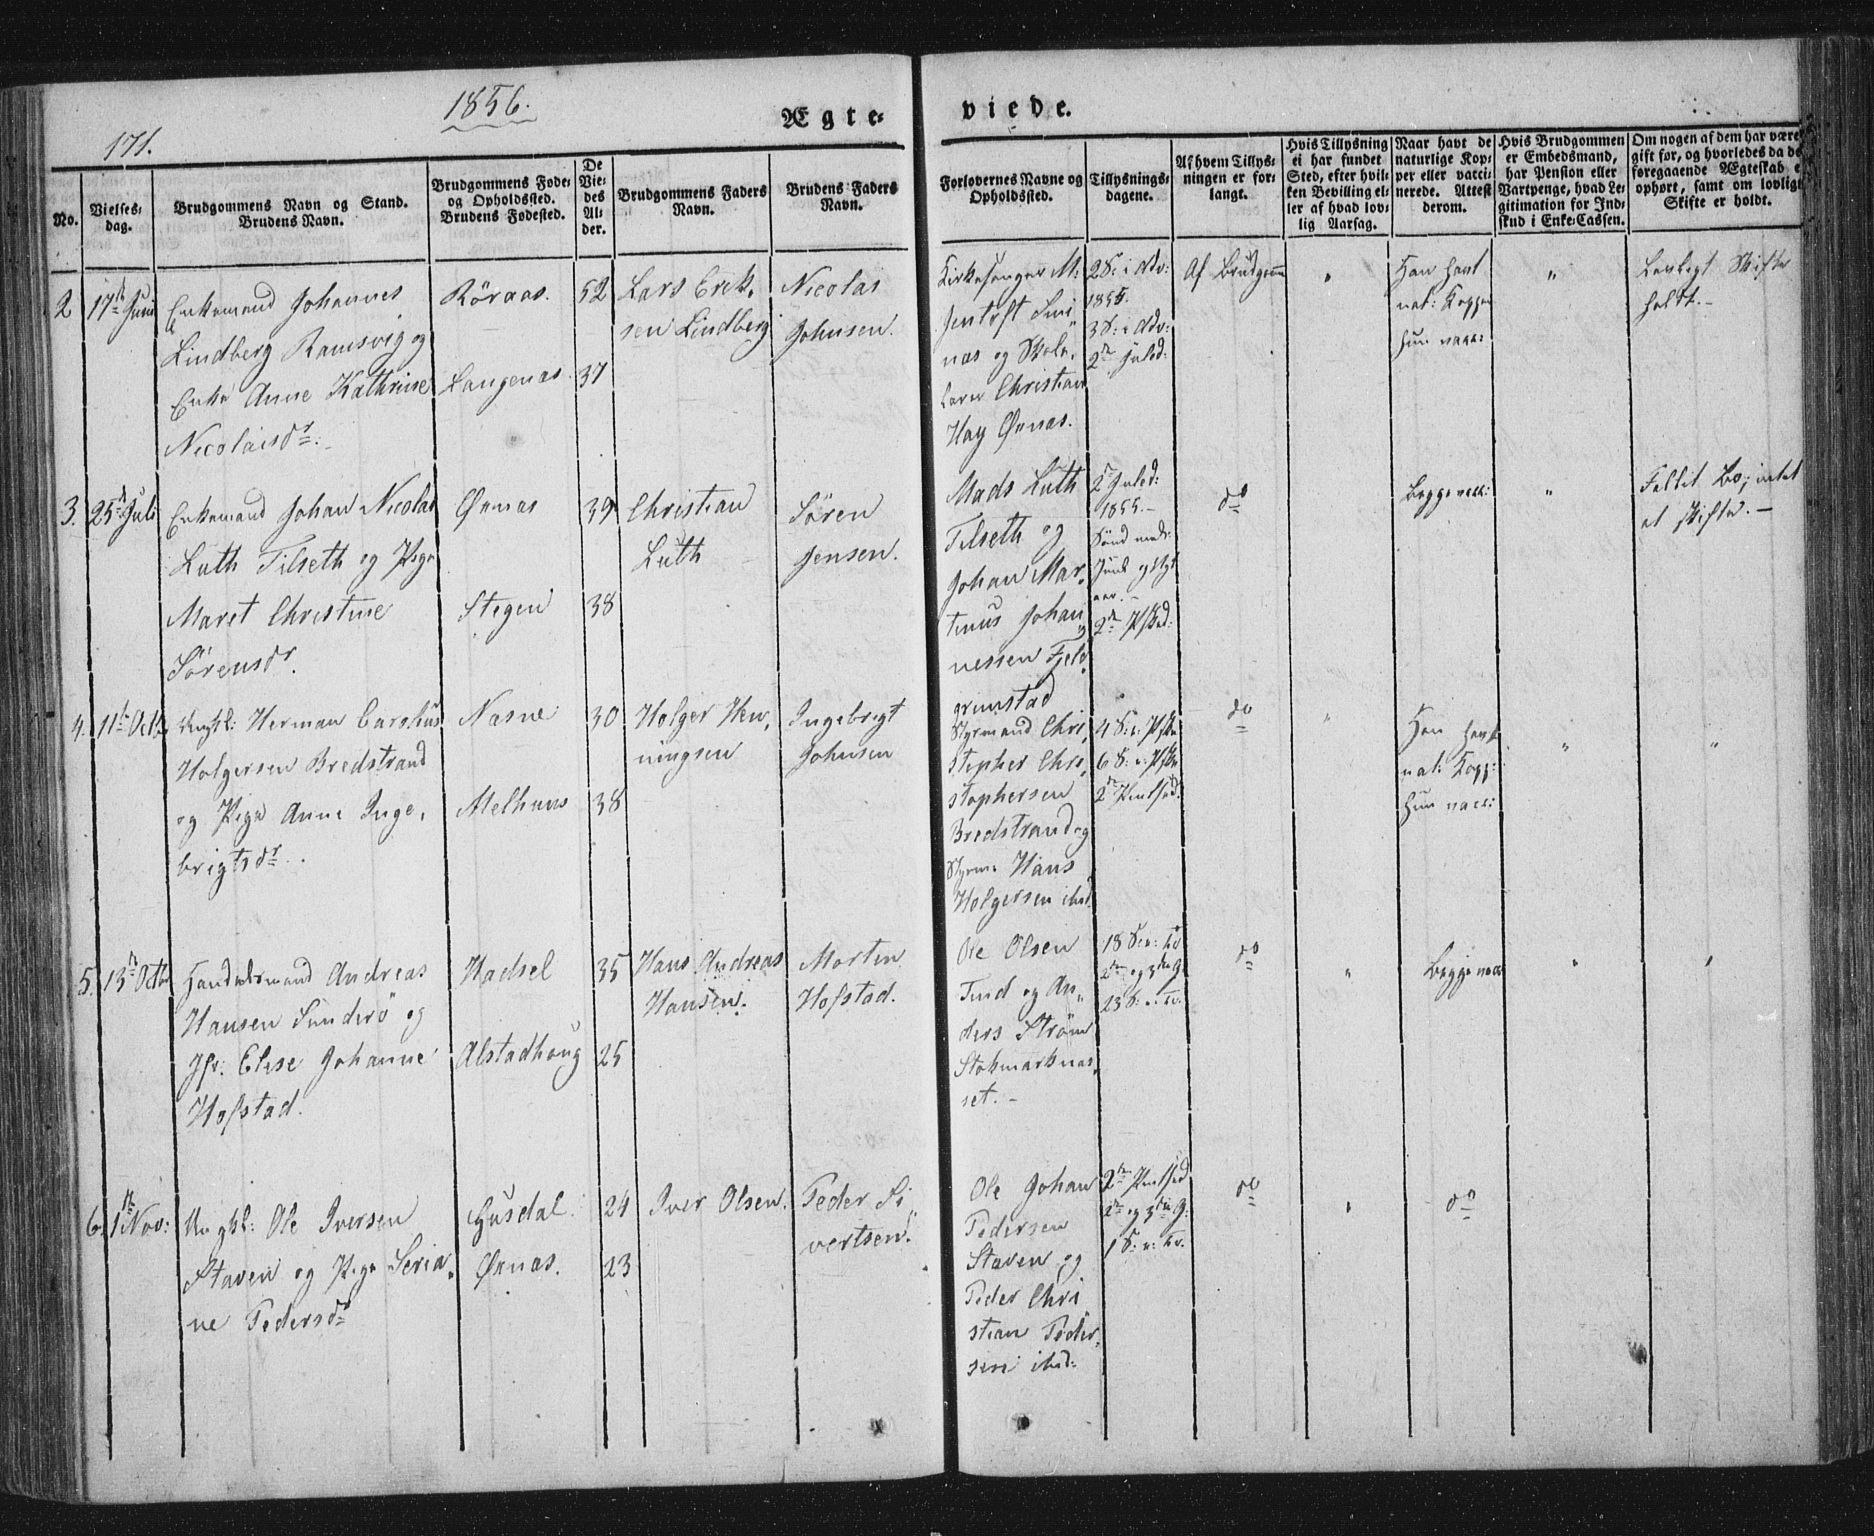 1856.
171.
Ægte-
viede.
No.
Vielses-
dag.
Brudgommens Navn og Stand.
Brudens Navn.
Brudgommens Føde-
og Opholdssted.
Brudens Fødested.
De
Vie-
des
Al-
der.
Brudgommens Faders
Navn.
Brudens Faders
Navn.
Forlovernes Navne og
Opholdssted.
Tillysnings-
dagene.
Af hvem Tillys-
ningen er for-
langt.
Hvis Tillysning
ei har fundet
Sted, efter hvil-
ken Bevilling el-
ler af hvad lov-
lig Aarsag.
Naar havt de
naturlige Kop-
per eller vacci-
nerede. Attest
derom.
Hvis Brudgommen
er Embedsmand,
har Pension eller
Vartpenge, hvad Le-
gitimation for Ind-
skud i Enke-Cassen.
Om nogen af dem har være
gift før, og hvorledes da de
foregaaende Ægteskab e
ophørt, samt om lovligt
Skifte er holdt.
2 17de Juni
Enkemand Johannes
Lindberg Ramsvig og
Enke Anne Kathrine
Nicolaisdr.
Röraas.
Langenas
52
37
Lars Erik-
sen Lindberg
Nicolai
Johnsen.
Kirkesanger M:
Jentoft Sni
nas og Skole-
larer Christian
Hay Ørnas.
2 S: i Adv:
1855.
3 S: i Adv:
2de Juled:
Af Brudgom
"
Han havt
nat: Kopper
hun vacc:
"
Lovligt Skifte
holdt.-
3. 25de Juli
Enkemand Johan Nicolai
Luth Tilseth og Pige
Maret Christine
Sörensdr.
Ørnas
Stegen
39
38
Christian
Luth
Sören
Jensen.
Mads Luth
Tilseth og
Johan Mar-
tinus Johan
nessen Fjeld
grimstad
2 Juled:
1855.-
Sönd mell:
Juul og Nyt
aar.-
2de Pskd:
do
Begge vacc:
"
Fallit Bo; intet
at skifte.-
4. 11te Octb
Ungkl: Herman Carelius
Holgersen Bredstrand
og Pige Anne Inge-
brigtsdr.
Nasne
Melhuus
30
38
Holger Hen-
ningsen
Ingebrigt
Johnsen
Styrmand Chri-
stopher Chri-
stophersen
Bredstrand og
Styrm: Hans
Holgersen ibid.
4 S: e: Pske
6 S: e: Pske
2de Pintsed:
do
"
Han havt
nat: Kopp:
hun vacc:
"
"
5. 13de Octb
Handelsmand Andreas
Hansen Sunderö og
Jfr. Elise Johanne
Hofstad.
Hadsel
Alstadhoug
35
25
Hans Andreas
Hansen.
Morten
Hofstad.
Ole Olsen
Tind og An-
ders Ström
Stokmarknas-
set.-
18 S: e: Tr.
13 S: e: Tr.
do
"
Begge vacc:
"
"
6. 1te Nov:
Ungkl: Ole Iversen
Staven og Pige Seria-
ne Pedersdr
Gusdal.
Ørnas.
24
23
Iver Olsen.
Peder Si
vertsen.
Ole Johan
Pedersen
Staven og
Peder Chri
stian Peder-
sen ibid:
2de Pintsed
1 S: e: Tr.
do
"
do